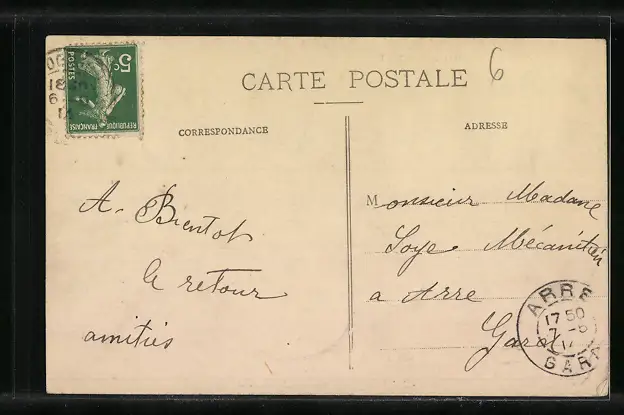 CARTE POSTALE
6
CORRESPONDANCE
ADRESSE
5c
POSTES
REPUBLIQUE FRANÇAISE
A. Bientot
le retour
amitiés
Monsieur Madame
Soye Mécanicien
a Arre
Gard
ARRE
17 50
7 - 6
GARD